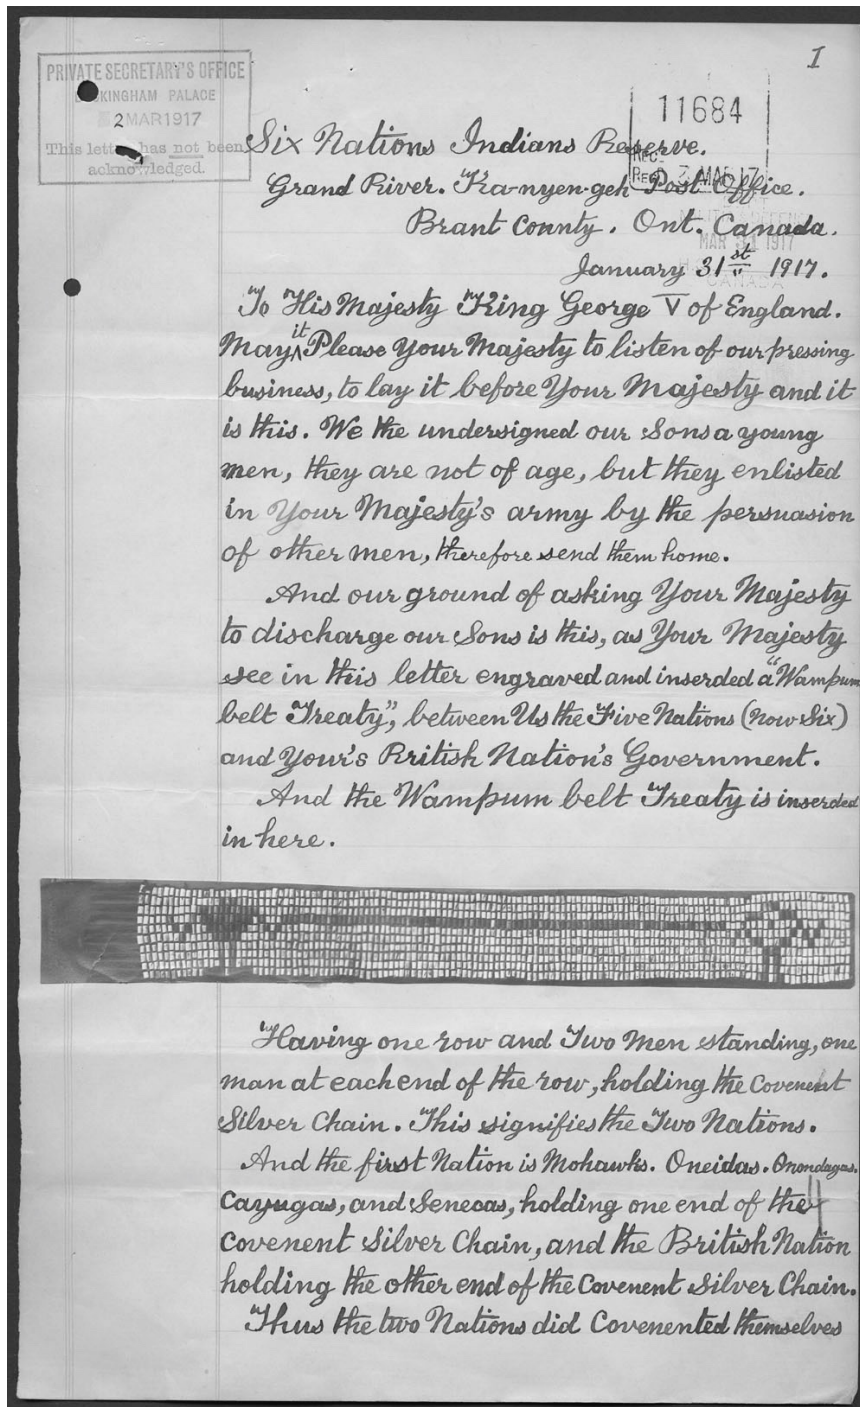 I
PRIVATE SECRETARY'S OFFICE
BUCKINGHAM PALACE
2 MAR 1917
This letter has not been
acknowledged.
11684
REC'D 3 MAR 17
MAR 31 1917
CANADA
Six Nations Indians Reserve.
Grand River. Ka-nyen-geh Post Office.
Brant County. Ont. Canada.
January 31st 1917.
To His Majesty King George V of England.
May it Please Your Majesty to listen of our pressing
business, to lay it before Your Majesty and it
is this. We the undersigned our Sons a young
men, they are not of age, but they enlisted
in Your Majesty's army by the persuasion
of other men, therefore send them home.
And our ground of asking Your Majesty
to discharge our Sons is this, as Your Majesty
see in this letter engraved and inserded a "Wampum
belt Treaty", between Us the Five Nations (now Six)
and Your's British Nation's Government.
And the Wampum belt Treaty is inserded
in here.
Having one row and Two Men standing, one
man at each end of the row, holding the Covenent
Silver Chain. This signifies the Two Nations.
And the first Nation is Mohawks. Oneidas. Onondagas.
Cayugas, and Senecas, holding one end of the
Covenent Silver Chain, and the British Nation
holding the other end of the Covenent Silver Chain.
Thus the two Nations did Covenented themselves